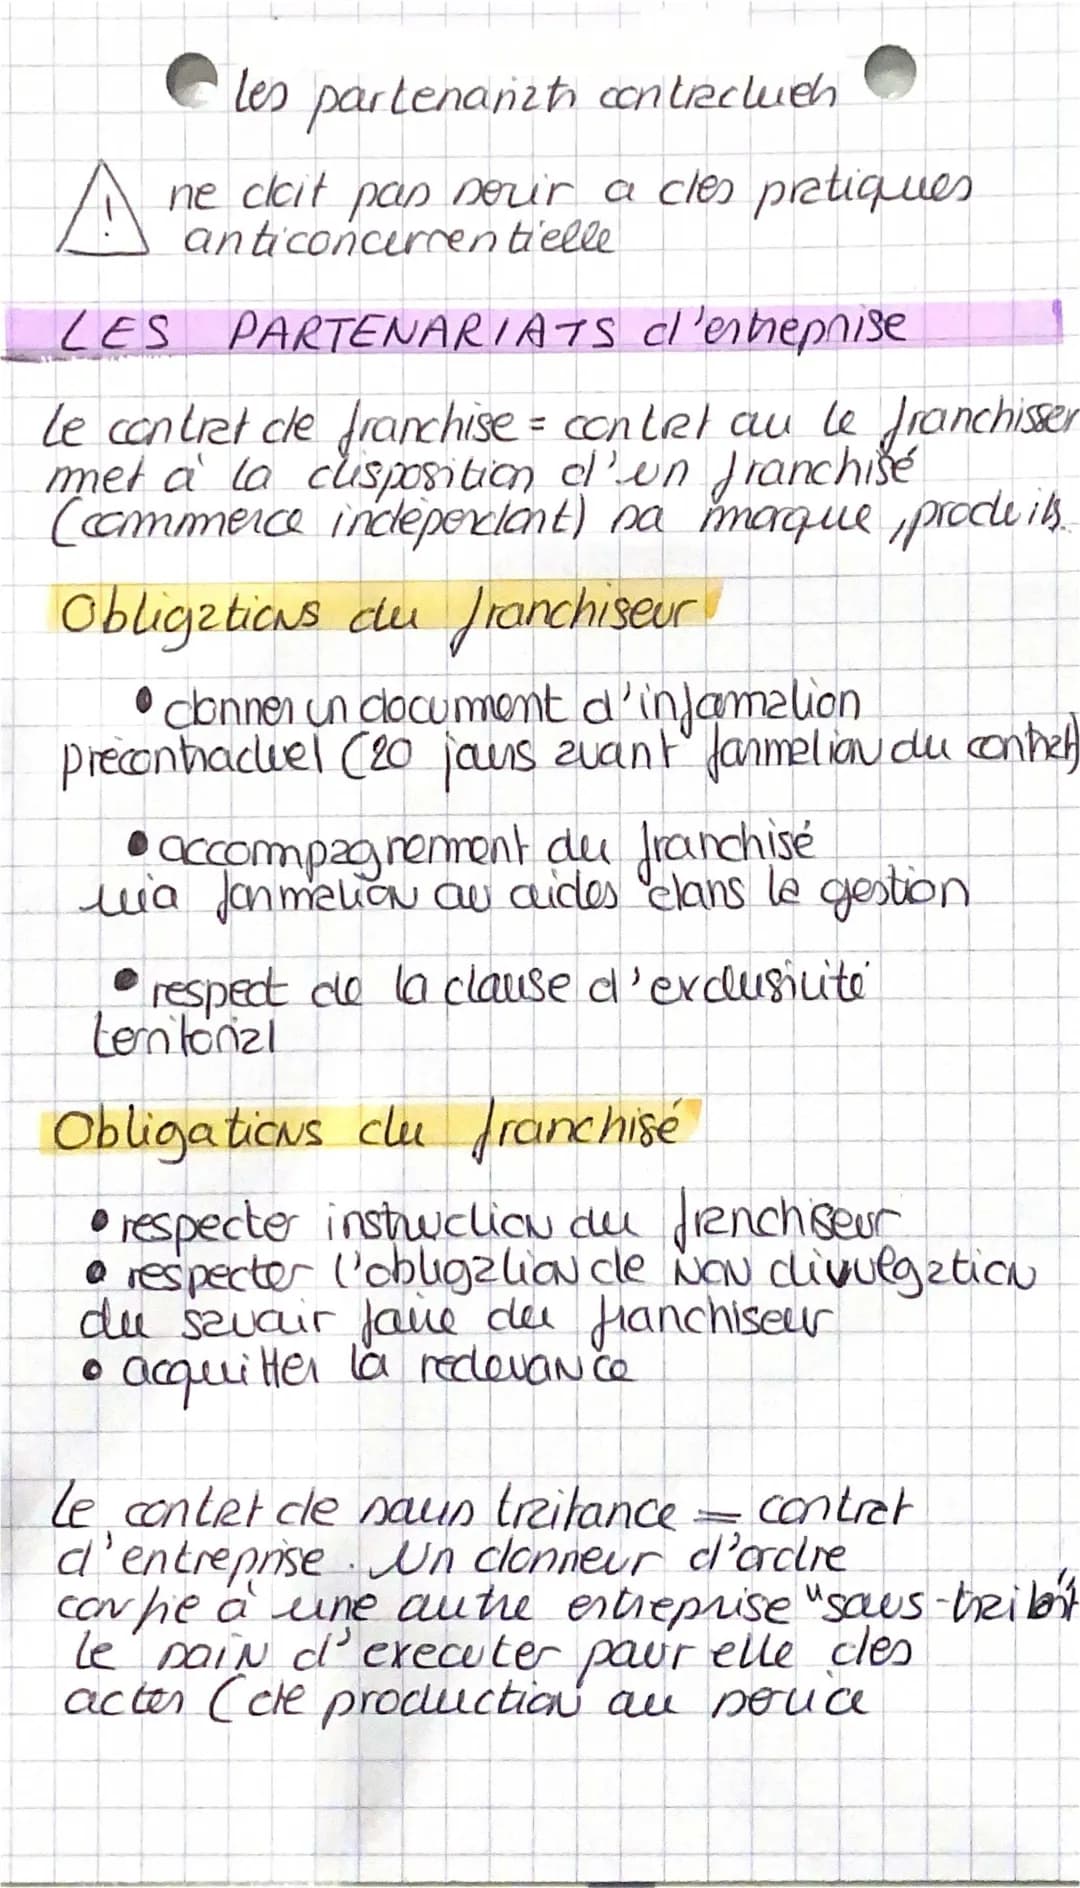 les partenariats contractuels
! ne doit pas servir a des pratiques
anticoncurrentielle
LES PARTENARIATS d'entreprise
Le contrat de franchise = contrat ou le franchisser
met à la disposition d'un franchisé
(commerce indépendant) sa marque, produits.
Obligations du franchiseur
• donner un document d'information
précontractuel (20 jours avant formation du contrat)
• accompagnement du franchisé
via formation ou aides dans la gestion
• respect de la clause d'exclusivité
territorial
Obligations du franchisé
• respecter instruction du franchiseur
• respecter l'obligation de non divulgation
du savoir faire du franchiseur
• acquitter la redevance
Le contrat de sous traitance = contrat
d'entreprise. Un donneur d'ordre
confie à une autre entreprise "sous-traitant
le soin d'executer pour elle des
actes (de production ou service